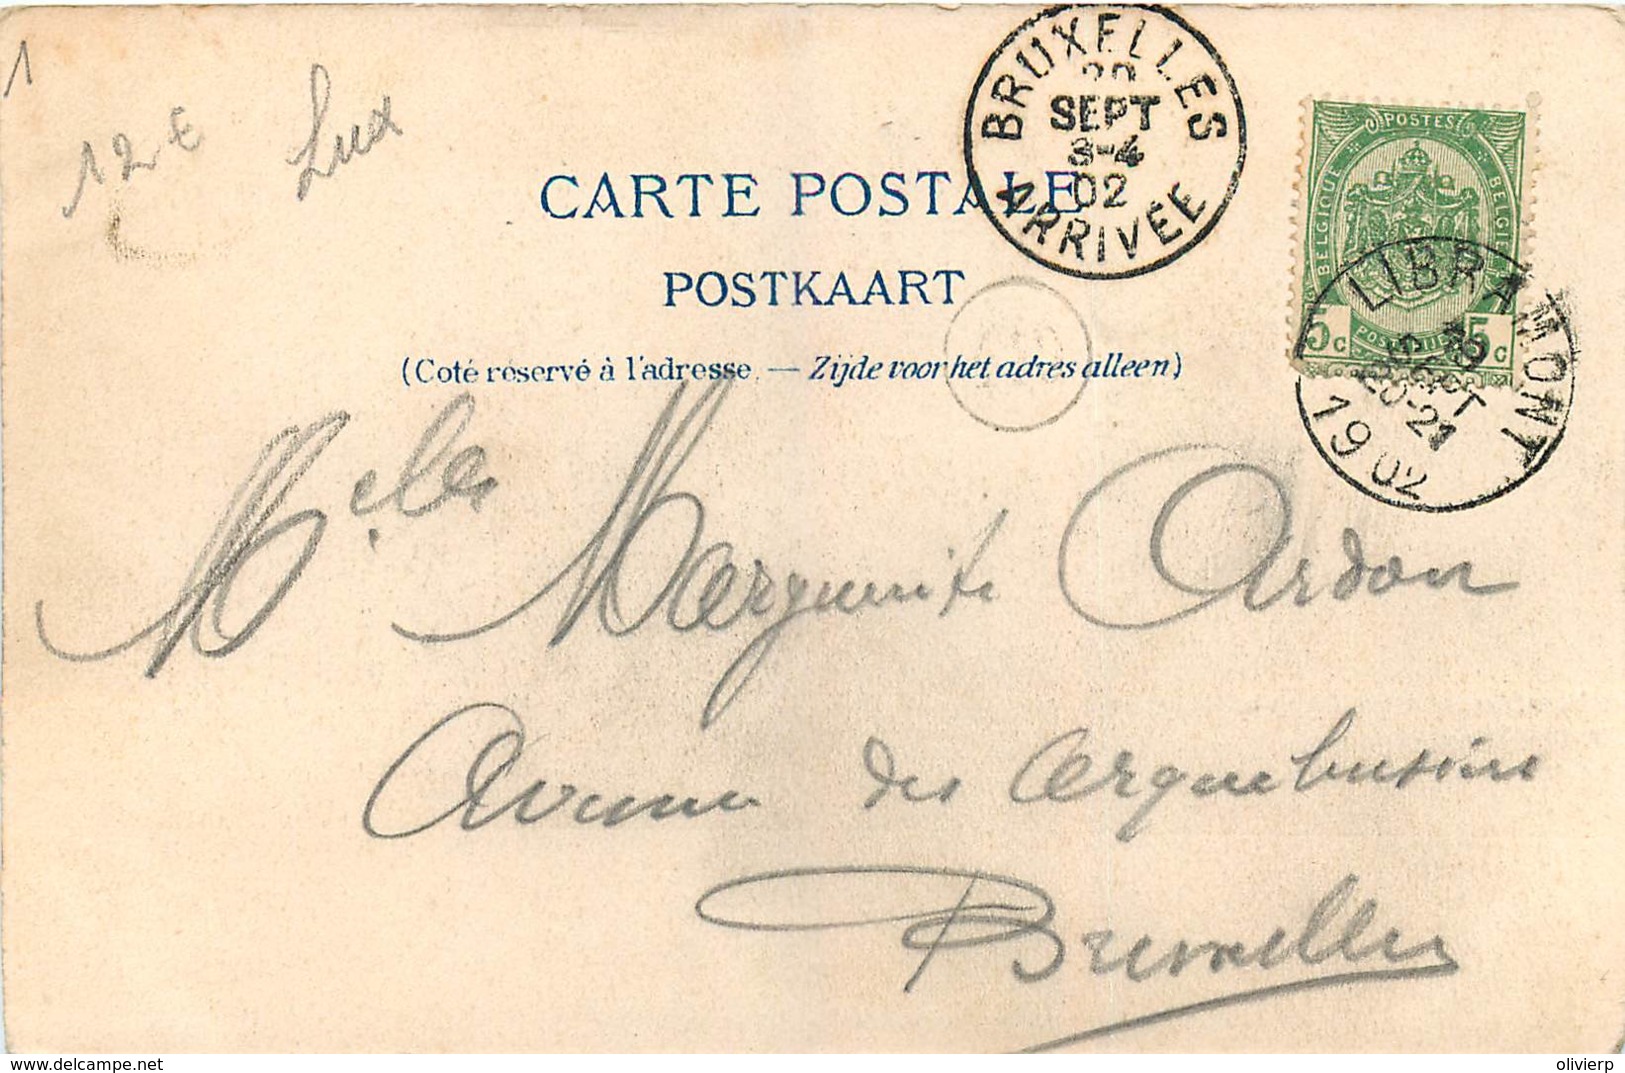 1
12€
Lux
BRUXELLES
SEPT
3-4
02
ARRIVÉE
POSTES
BELGIQUE
BELGIË
5c
5c
LIBRAMONT
SEPT
20-21
1902
CARTE POSTALE
POSTKAART
(Coté réservé à l'adresse. — Zijde voor het adres alleen)
Melle Marguerite Ardon
Avenue des Arquebusiers
Bruxelles
delcampe.net
olivierp